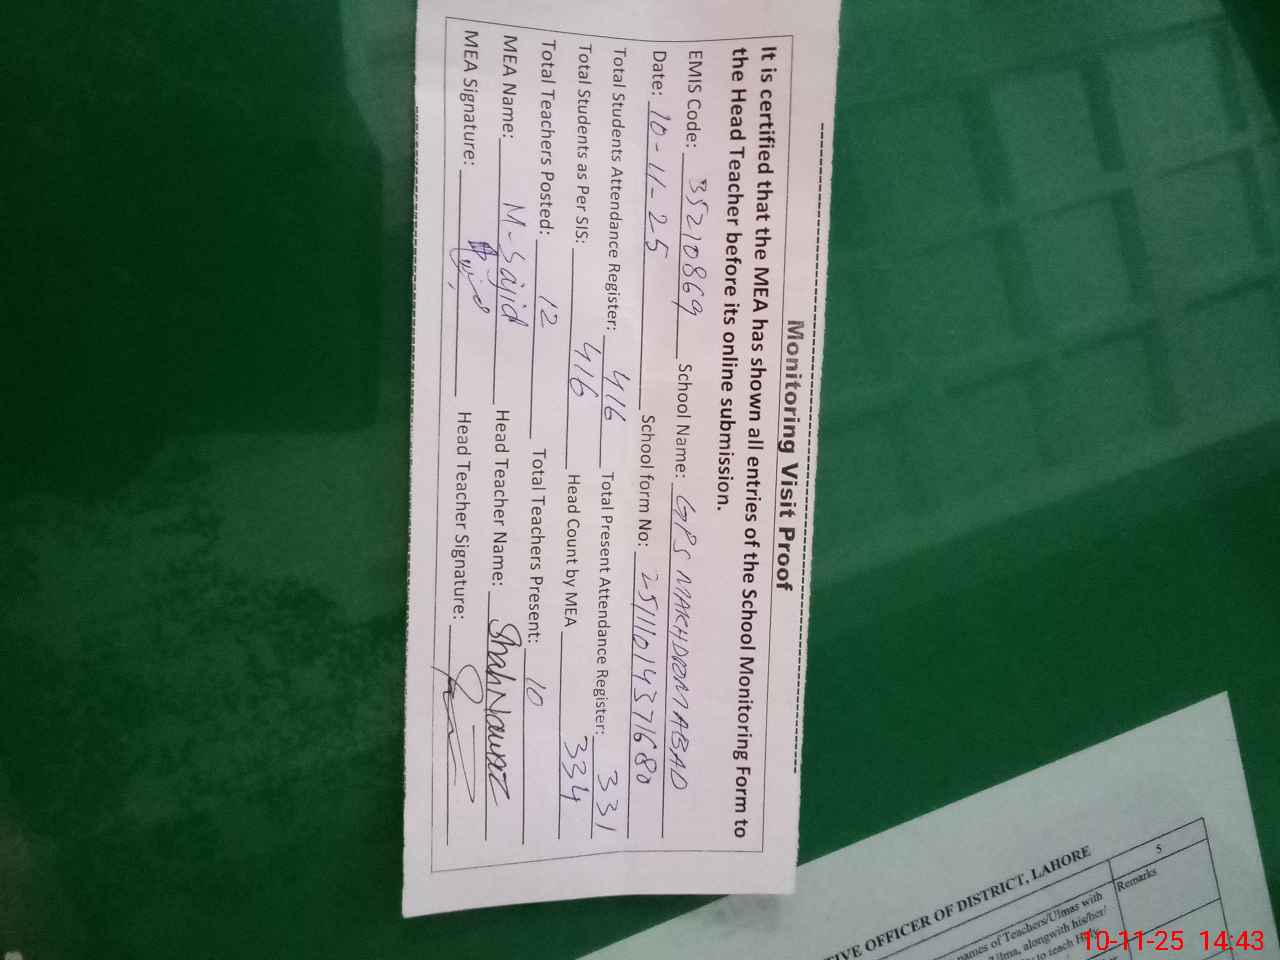 Monitoring Visit Proof
It is certified that the MEA has shown all entries of the School Monitoring Form to
the Head Teacher before its online submission.
EMIS Code: 35210869 School Name: GPS MAKHDOOMABAD
Date: 10-11-25 School form No: 25111014371680
Total Students Attendance Register: 416 Total Present Attendance Register: 331
Total Students as Per SIS: 416 Head Count by MEA 334
Total Teachers Posted: 12 Total Teachers Present: 10
MEA Name: M-Sajid Head Teacher Name: Shah Nawaz
MEA Signature: Head Teacher Signature:
TIVE OFFICER OF DISTRICT, LAHORE
5
names of Teachers/Ulmas with
Remarks
Ulma, alongwith his/her/
to teach Holy
10-11-25 14:43